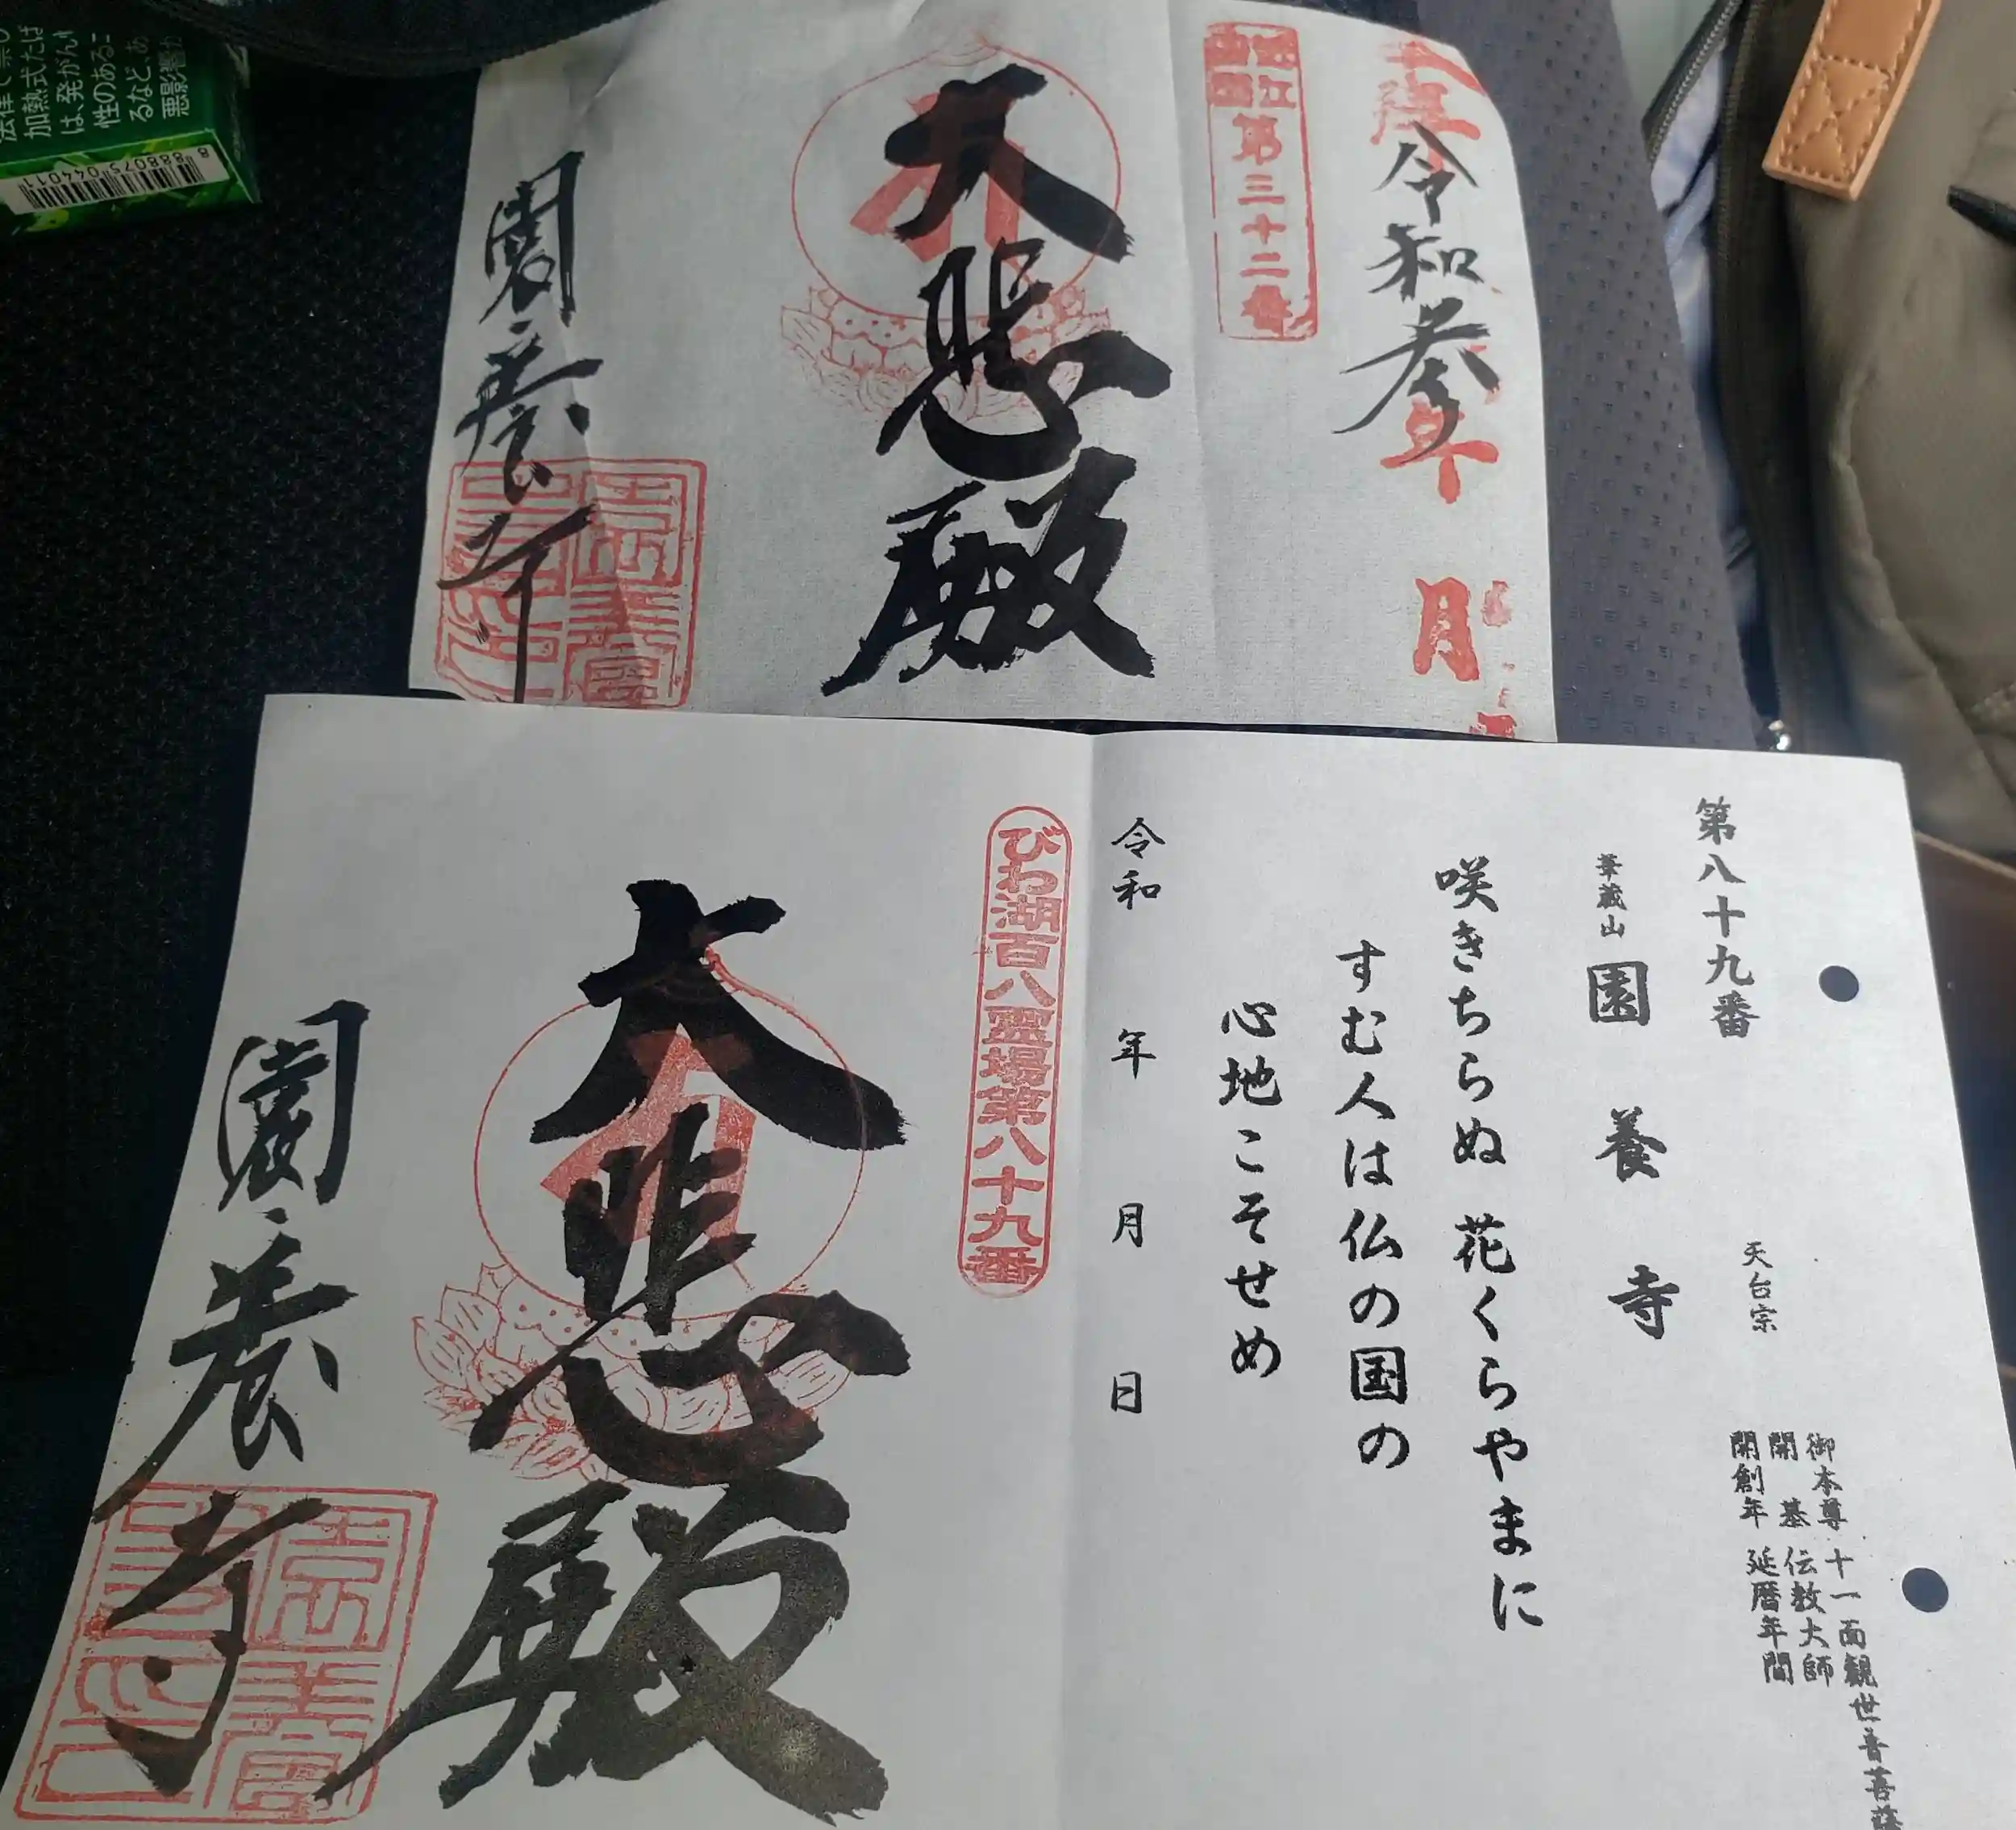 加熱式たば
は、発がん
性のある
るなど、あ
悪影響
8 888075 044011
奉拝
令和参年
月
第三十二番
大悲殿
園養寺
第八十九番
天台宗
御本尊 十一面観世音菩薩
開基 伝教大師
開創年 延暦年間
華蔵山 園養寺
咲きちらぬ 花くらやまに
すむ人は仏の国の
心地こそせめ
令和 年 月 日
びわ湖百八霊場第八十九番
大悲殿
園養寺